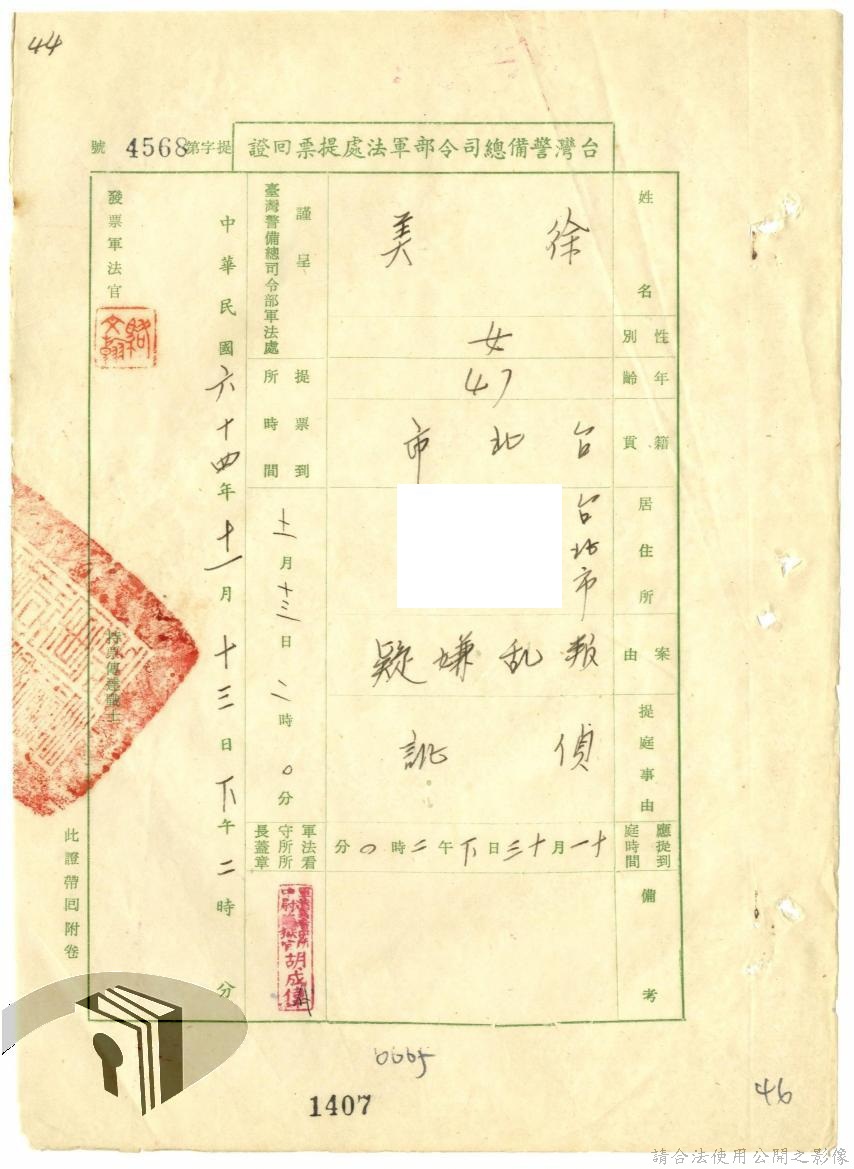 44
台灣警備總司令部軍法處提票回證
提字第4568號
姓名
徐美
性別
女
年齡
47
籍貫
台北市
居住所
台北市
案由
叛乱嫌疑
提庭事由
偵訊
應提到庭時間
十一月十三日下午二時0分
備考
謹呈
臺灣警備總司令部軍法處
提票到所時間
十一月十三日二時0分
軍法看守所所長蓋章
胡成儀
中華民國六十四年十一月十三日下午二時 分
發票軍法官
持票傳達戰士
此證帶回附卷
1407
46
請合法使用公開之影像